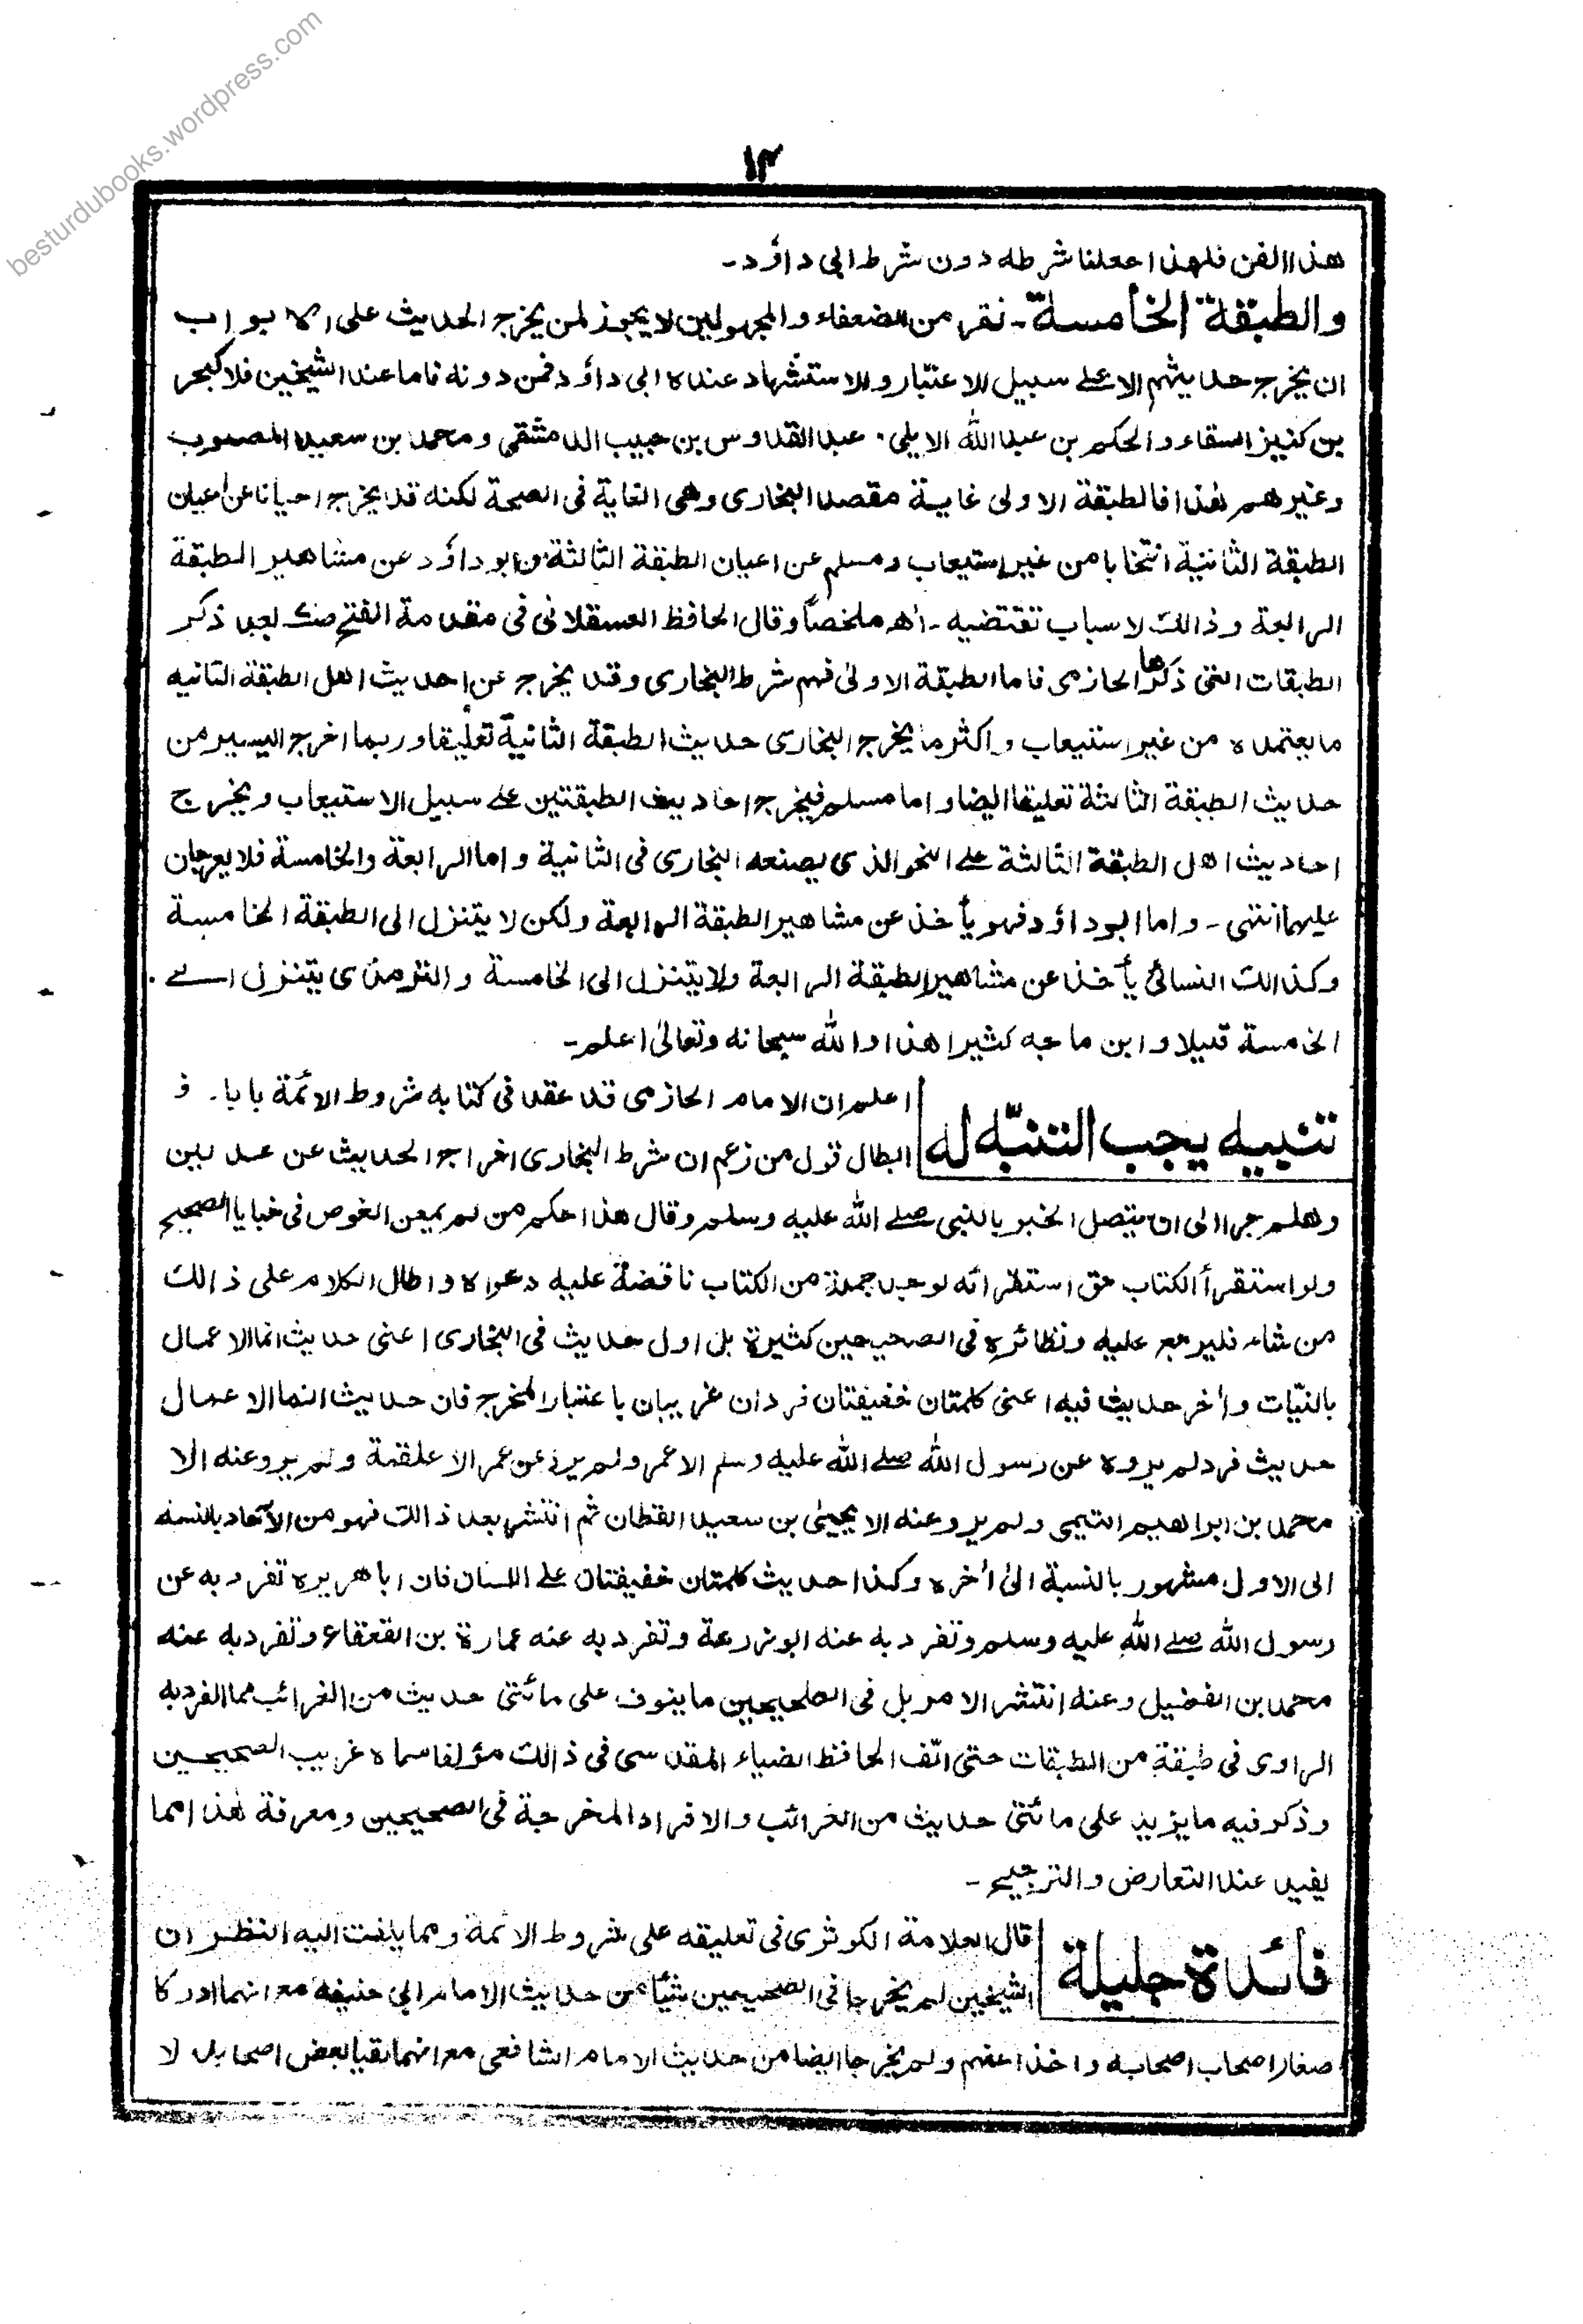 besturdubooks.wordpress.com
١٣
هذا الفن فلهذا جعلنا شرطه دون شرط ابى داؤد-
والطبقة الخامسة- نفر من الضعفاء والمجهولين لا يجوز لمن يخرج الحديث على الابواب
ان يخرج حديثهم الا على سبيل الاعتبار والاستشهاد عنده ابى داؤد فمن دونه فاما عند الشيخين فلا كبحر
بن كنيز السقاء والحكم بن عبد الله الايلى. عبد القدوس بن حبيب الدمشقى ومحمد بن سعيد المصلوب
وغيرهم هٰذا فالطبقة الاولى غاية مقصد البخارى وهى الغاية فى الصحة لكنه قد يخرج احيانا عن اعيان
الطبقة الثانية انتخابا من غير استيعاب ومسلم عن اعيان الطبقة الثالثة وابو داؤد عن مشاهير الطبقة
الرابعة وذالك لاسباب تقتضيه -اٰه ملخصاً وقال الحافظ العسقلانى فى مقدمة الفتح بعد ذكر
الطبقات التى ذكرها الحازمى فاما الطبقة الاولىٰ فهم شرط البخارى وقد يخرج عن احديث اهل الطبقة الثانيه
ما يعتمده من غير استيعاب واكثر ما يخرج البخارى حديث الطبقة الثانية تعليقا وربما اخرج اليسير من
حديث الطبقة الثالثة تعليقا ايضا واما مسلم فيخرج احاديث الطبقتين على سبيل الاستيعاب ويخرج
احاديث اهل الطبقة الثالثة على النحو الذى يصنعه البخارى فى الثانية واما الرابعة والخامسة فلا يعرجان
عليهما انتهى - واما ابو داؤد فهو يأخذ عن مشاهير الطبقة الرابعة ولكن لا يتنزل الى الطبقة الخامسة
وكذالك النسائى يأخذ عن مشاهير الطبقة الرابعة ولا يتنزل الى الخامسة والترمذى يتنزل الى
الخامسة قليلا وابن ماجه كثيرا هذا والله سبحانه وتعالىٰ اعلم-
تنبيه يجب التنبّه له اعلم ان الامام الحازمى قد عقد فى كتابه شروط الائمة بابا. فى
ابطال قول من زعم ان شرط البخارى اخراج الحديث عن عدلين
وهلم جرا الى ان يتصل الخبر بالنبى صلے الله عليه وسلم وقال هذا حكم من لم يمعن الغوص فى خبايا الصحيح
ولو استقرأ الكتاب حق استقرائه لوجد جملة من الكتاب ناقضة عليه دعواه واطال الكلام على ذالك
من شاء فليرجع عليه ونظائره فى الصحيحين كثيرة بل اول حديث فى البخارى اعنى حديث انما الاعمال
بالنيّات واٰخر حديث فيه اعنى كلمتان خفيفتان فردان غريبان باعتبار المخرج فان حديث انما الاعمال
حديث فرد لم يروه عن رسول الله صلے الله عليه وسلم الا عمر ولم يرو عن عمر الا علقمة ولم يرو عنه الا
محمد بن ابراهيم التيمى ولم يرو عنه الا يحيىٰ بن سعيد القطان ثم انتشر بعد ذالك فهو من الآحاد بالنسبه
الى الاول مشهور بالنسبة الىٰ اٰخره وكذا حديث كلمتان خفيفتان على اللسان فان ابا هريره تفرد به عن
رسول الله صلے الله عليه وسلم وتفرد به عنه ابو زرعة وتفرد به عنه عمارة بن القعقاع وتفرد به عنه
محمد بن الفضيل وعنه انتشر الامر بل فى الصحيحين ما ينوف على مائتى حديث من الغرائب مما انفرد به
الراوى فى طبقة من الطبقات حتى الّف الحافظ الضياء المقدسى فى ذالك مؤلفا سماه غريب الصحيحين
وذكر فيه ما يزيد على مائتى حديث من الغرائب والافراد المخرجة فى الصحيحين ومعرفة هٰذا مما
يفيد عند التعارض والترجيح-
فائدة جليلة قال العلامة الكوثرى فى تعليقه على شروط الائمة ومما يلفت اليه النظر ان
الشيخين لم يخرجا فى الصحيحين شيئاً من حديث الامام ابى حنيفه مع انهما ادركا
صغار اصحاب اصحابه واخذا عنهم ولم يخرجا ايضا من حديث الامام الشافعى مع انهما لقيا بعض اصحابه لا